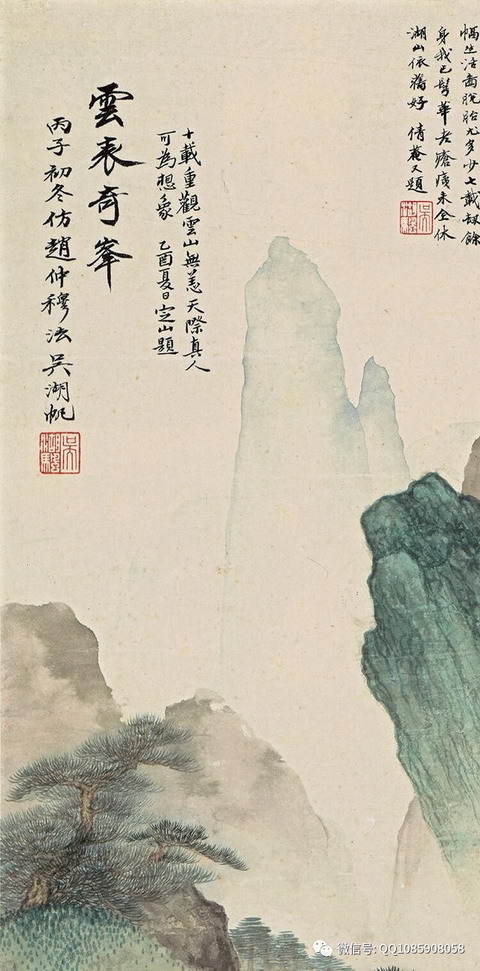 幅生活脫胎尤多少七載劫餘
身我已髩華老瘡痍未全休
湖山依舊好 倩菴又題
十載重觀雲山無恙天際真人
可為想象 乙酉夏日定山題
雲表奇峯
丙子初冬仿趙仲穆法吳湖帆
微信号: QQ1085908058